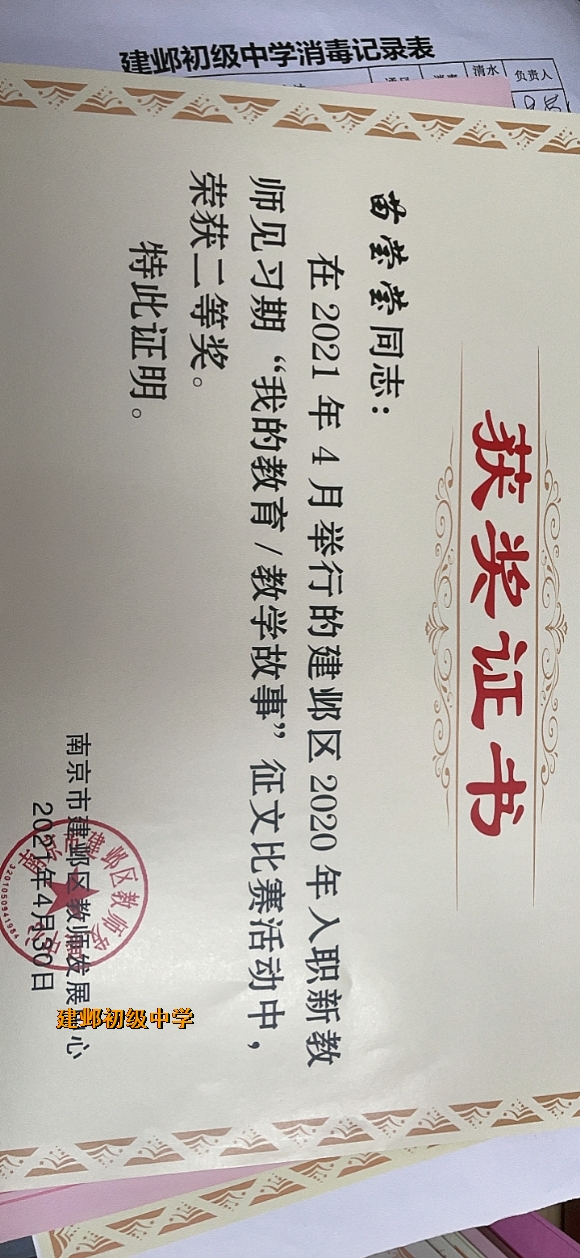 建邺初级中学消毒记录表
清水
负责人
获奖证书
苗莹莹同志：
在2021年4月举行的建邺区2020年入职新教
师见习期“我的教育/教学故事”征文比赛活动中，
荣获二等奖。
特此证明。
南京市建邺区教师发展中心
2021年4月30日
3201050941984
建邺初级中学